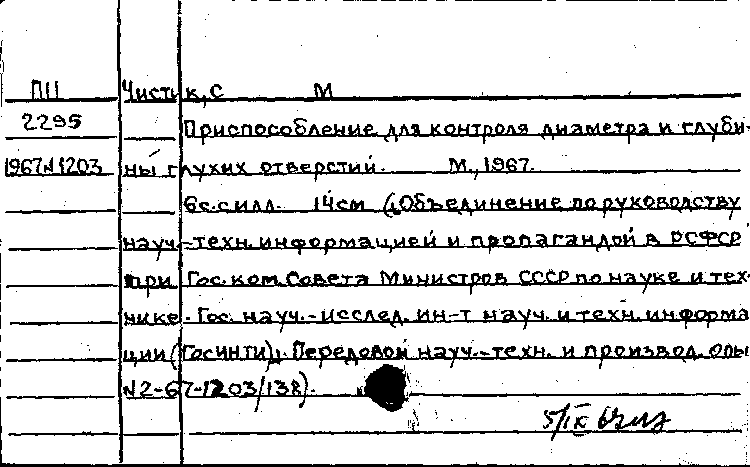 ПН Чистик, С М
2295 Приспособление для контроля диаметра и глуби-
1967 N 1203 ны глухих отверстий. М., 1967.
6 с. с илл. 14 см (Объединение по руководству
науч.-техн. информацией и пропагандой в РСФСР
при Гос. ком. Совета Министров СССР по науке и тех-
нике. Гос. науч.-исслед. ин-т науч. и техн. информа
ции (ГОСИНТИ). Передовой науч.-техн. и производ. опы
N 2-67-1203/138).
5/IX